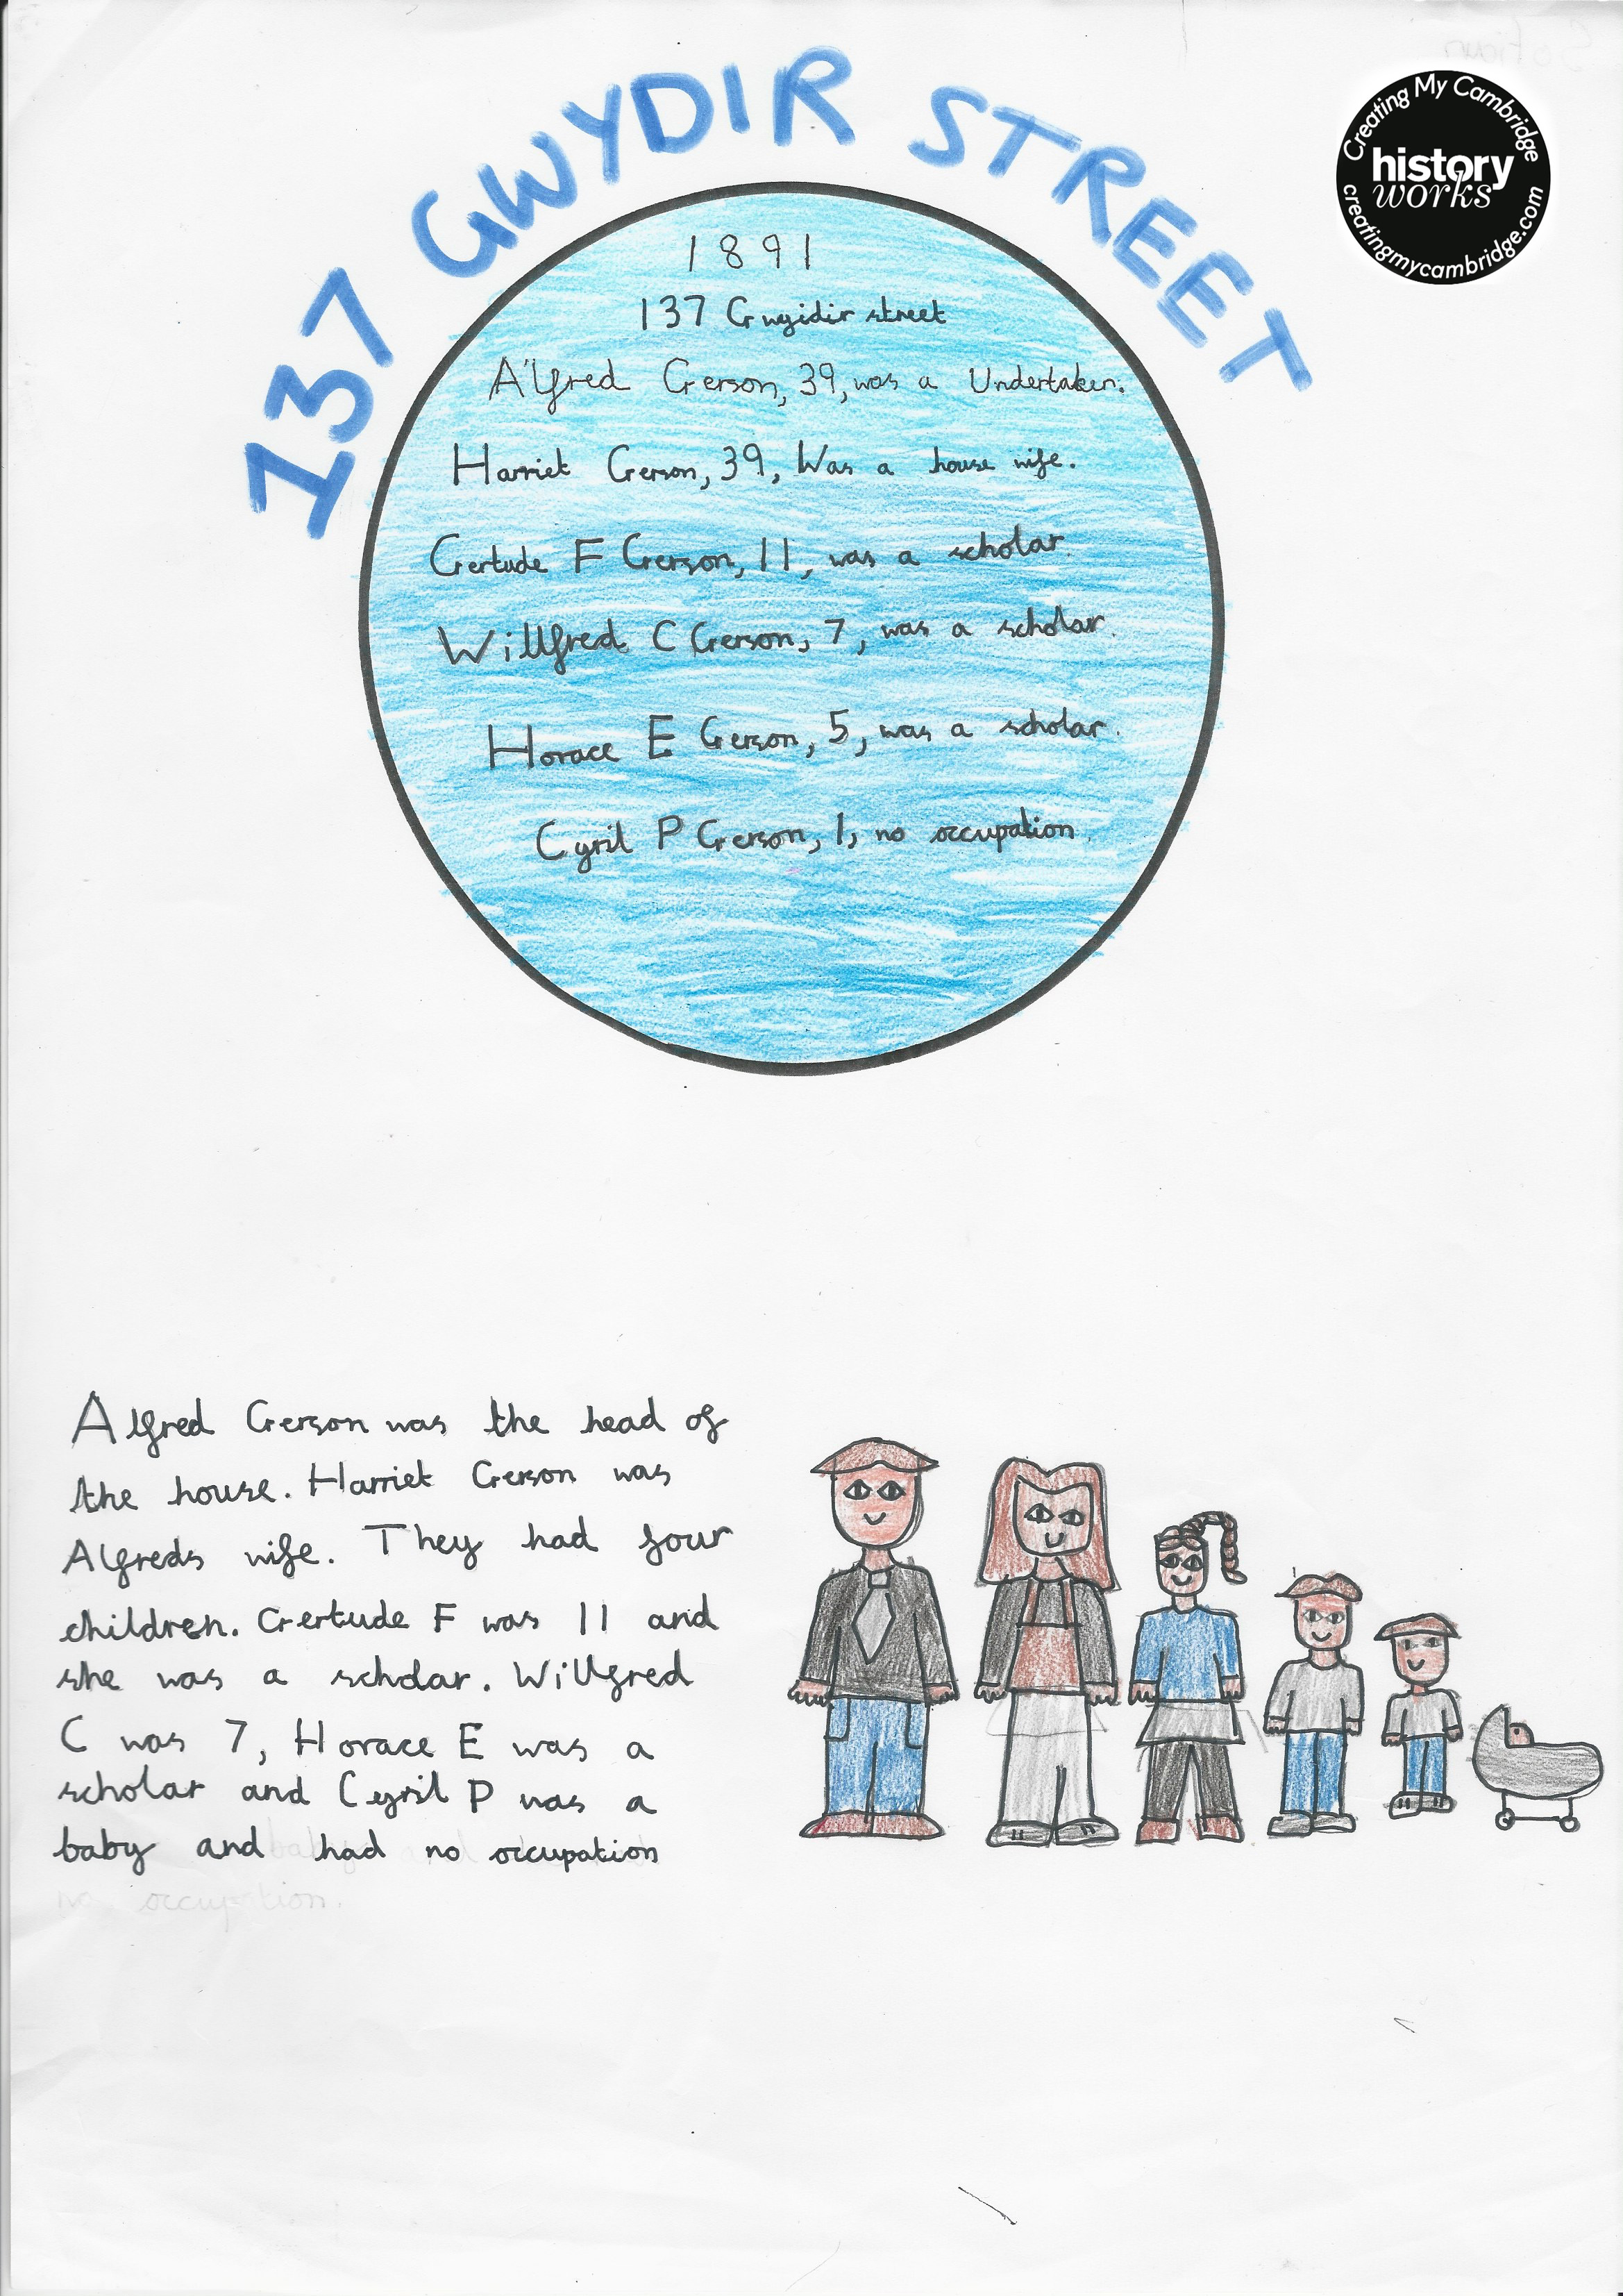 137 GWYDIR STREET
Creating My Cambridge
history
works
creatingmycambridge.com
1891
137 Gwyidir street
Alfred Gerson, 39, was a Undertaker.
Harriet Gerson, 39, Was a house wife.
Gertude F Gerson, 11, was a scholar.
Willfred C Gerson, 7, was a scholar.
Horace E Gerson, 5, was a scholar.
Cyril P Gerson, 1, no occupation.
Alfred Gerson was the head of
the house. Harriet Gerson was
Alfreds wife. They had four
children. Gertude F was 11 and
she was a scholar. Willfred
C was 7, Horace E was a
scholar and Cyril P was a
baby and had no occupation
no occupation.